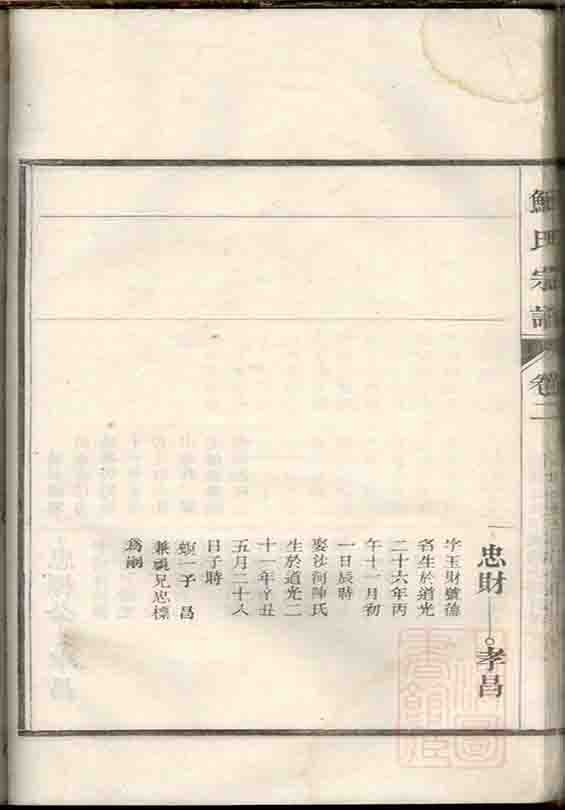 氏宗譜
卷二
忠財 ○孝昌
字玉財號德
省生於道光
二十六年丙
午十一月初
一日辰時
娶沙河陳氏
生於道光二
十一年辛丑
五月二十八
日子時
一子 昌
兼祧兄忠標
爲嗣